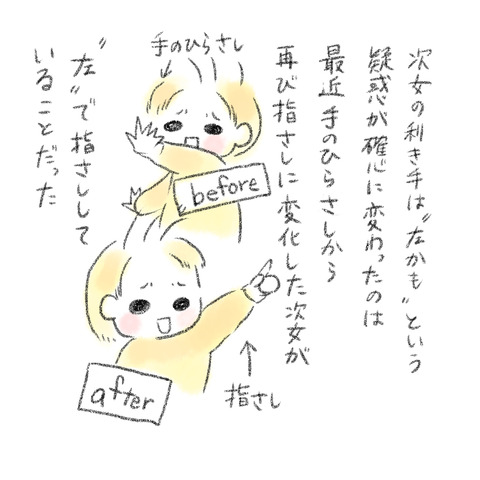 次女の利き手は"左かも"という
疑惑が確心に変わったのは
最近 手のひらさしから
再び指さしに変化した次女が
"左"で指さしして
いることだった
手のひらさし
before
指さし
after